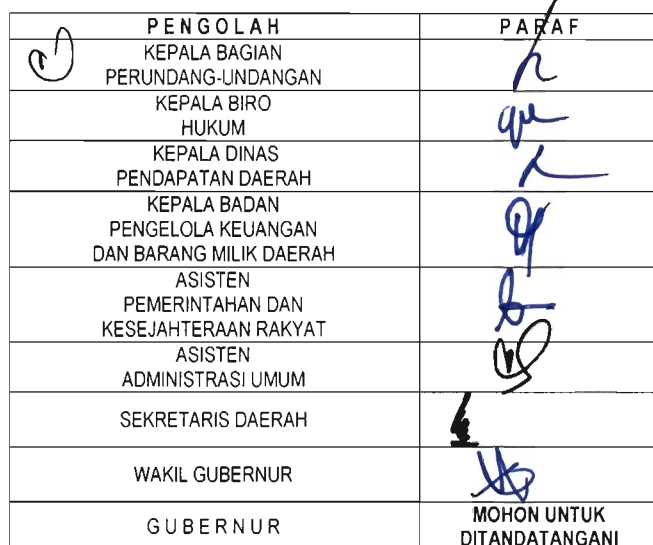 PENGOLAH PARAF
KEPALA BAGIAN
PERUNDANG-UNDANGAN
KEPALA BIRO
HUKUM
KEPALA DINAS
PENDAPATAN DAERAH
KEPALA BADAN
PENGELOLA KEUANGAN
DAN BARANG MILIK DAERAH
ASISTEN
PEMERINTAHAN DAN
KESEJAHTERAAN RAKYAT
ASISTEN
ADMINISTRASI UMUM
SEKRETARIS DAERAH
WAKIL GUBERNUR
GUBERNUR MOHON UNTUK
DITANDATANGANI